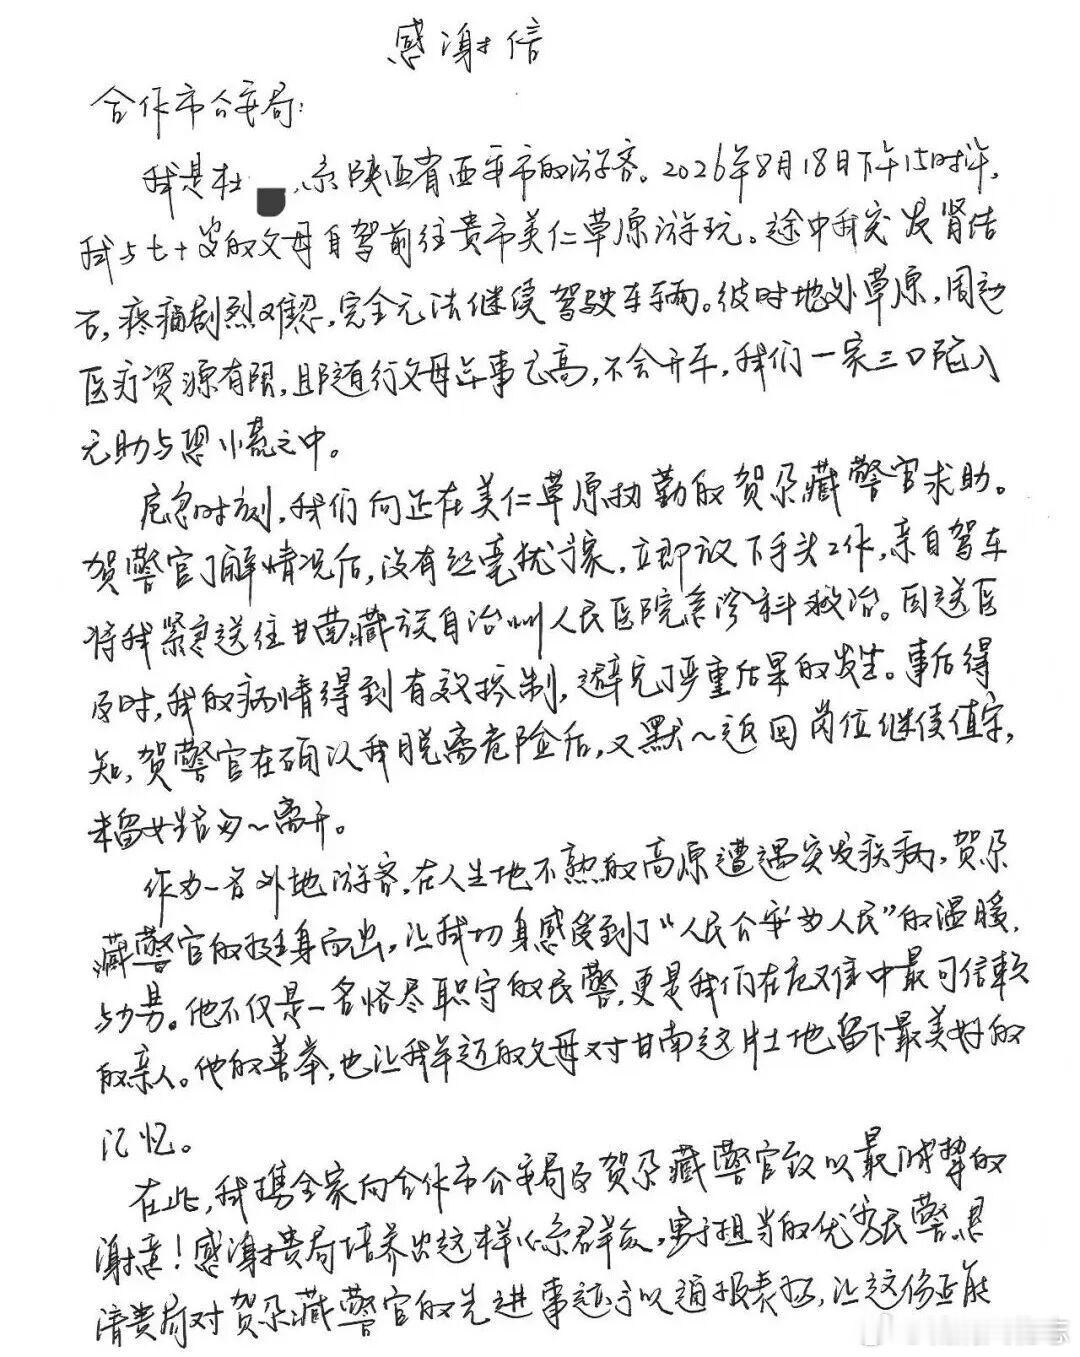 感谢信
合作市公安局：
我是杜 ，系陕西省西安市的游客。2026年8月18日下午15时许，
我与七十岁的父母自驾前往贵市美仁草原游玩。途中我突发肾结
石，疼痛剧烈难忍，完全无法继续驾驶车辆。彼时地处草原，周边
医疗资源有限，且随行父母年事已高，不会开车，我们一家三口陷入
无助与恐慌之中。
危急时刻，我们向正在美仁草原执勤的贺朵藏警官求助。
贺警官了解情况后，没有丝毫犹豫，立即放下手头工作，亲自驾车
将我紧急送往甘南藏族自治州人民医院急诊科救治。因送医
及时，我的病情得到有效控制，避免了严重后果的发生。事后得
知，贺警官在确认我脱离危险后，又默～返回岗位继续值守，
未留姓名匆～离开。
作为一名外地游客，在人生地不熟的高原遭遇突发疾病，贺朵
藏警官的挺身而出，让我切身感受到了“人民公安为人民”的温暖
与力量。他不仅是一名恪尽职守的民警，更是我们在危难中最可信赖
的亲人。他的善举，也让我年迈的父母对甘南这片土地留下最美好的
记忆。
在此，我携全家向合作市公安局及贺朵藏警官致以最诚挚的
谢意！感谢贵局培养出这样心系群众，勇于担当的优秀民警。恳
请贵局对贺朵藏警官的先进事迹予以通报表扬，让这份正能